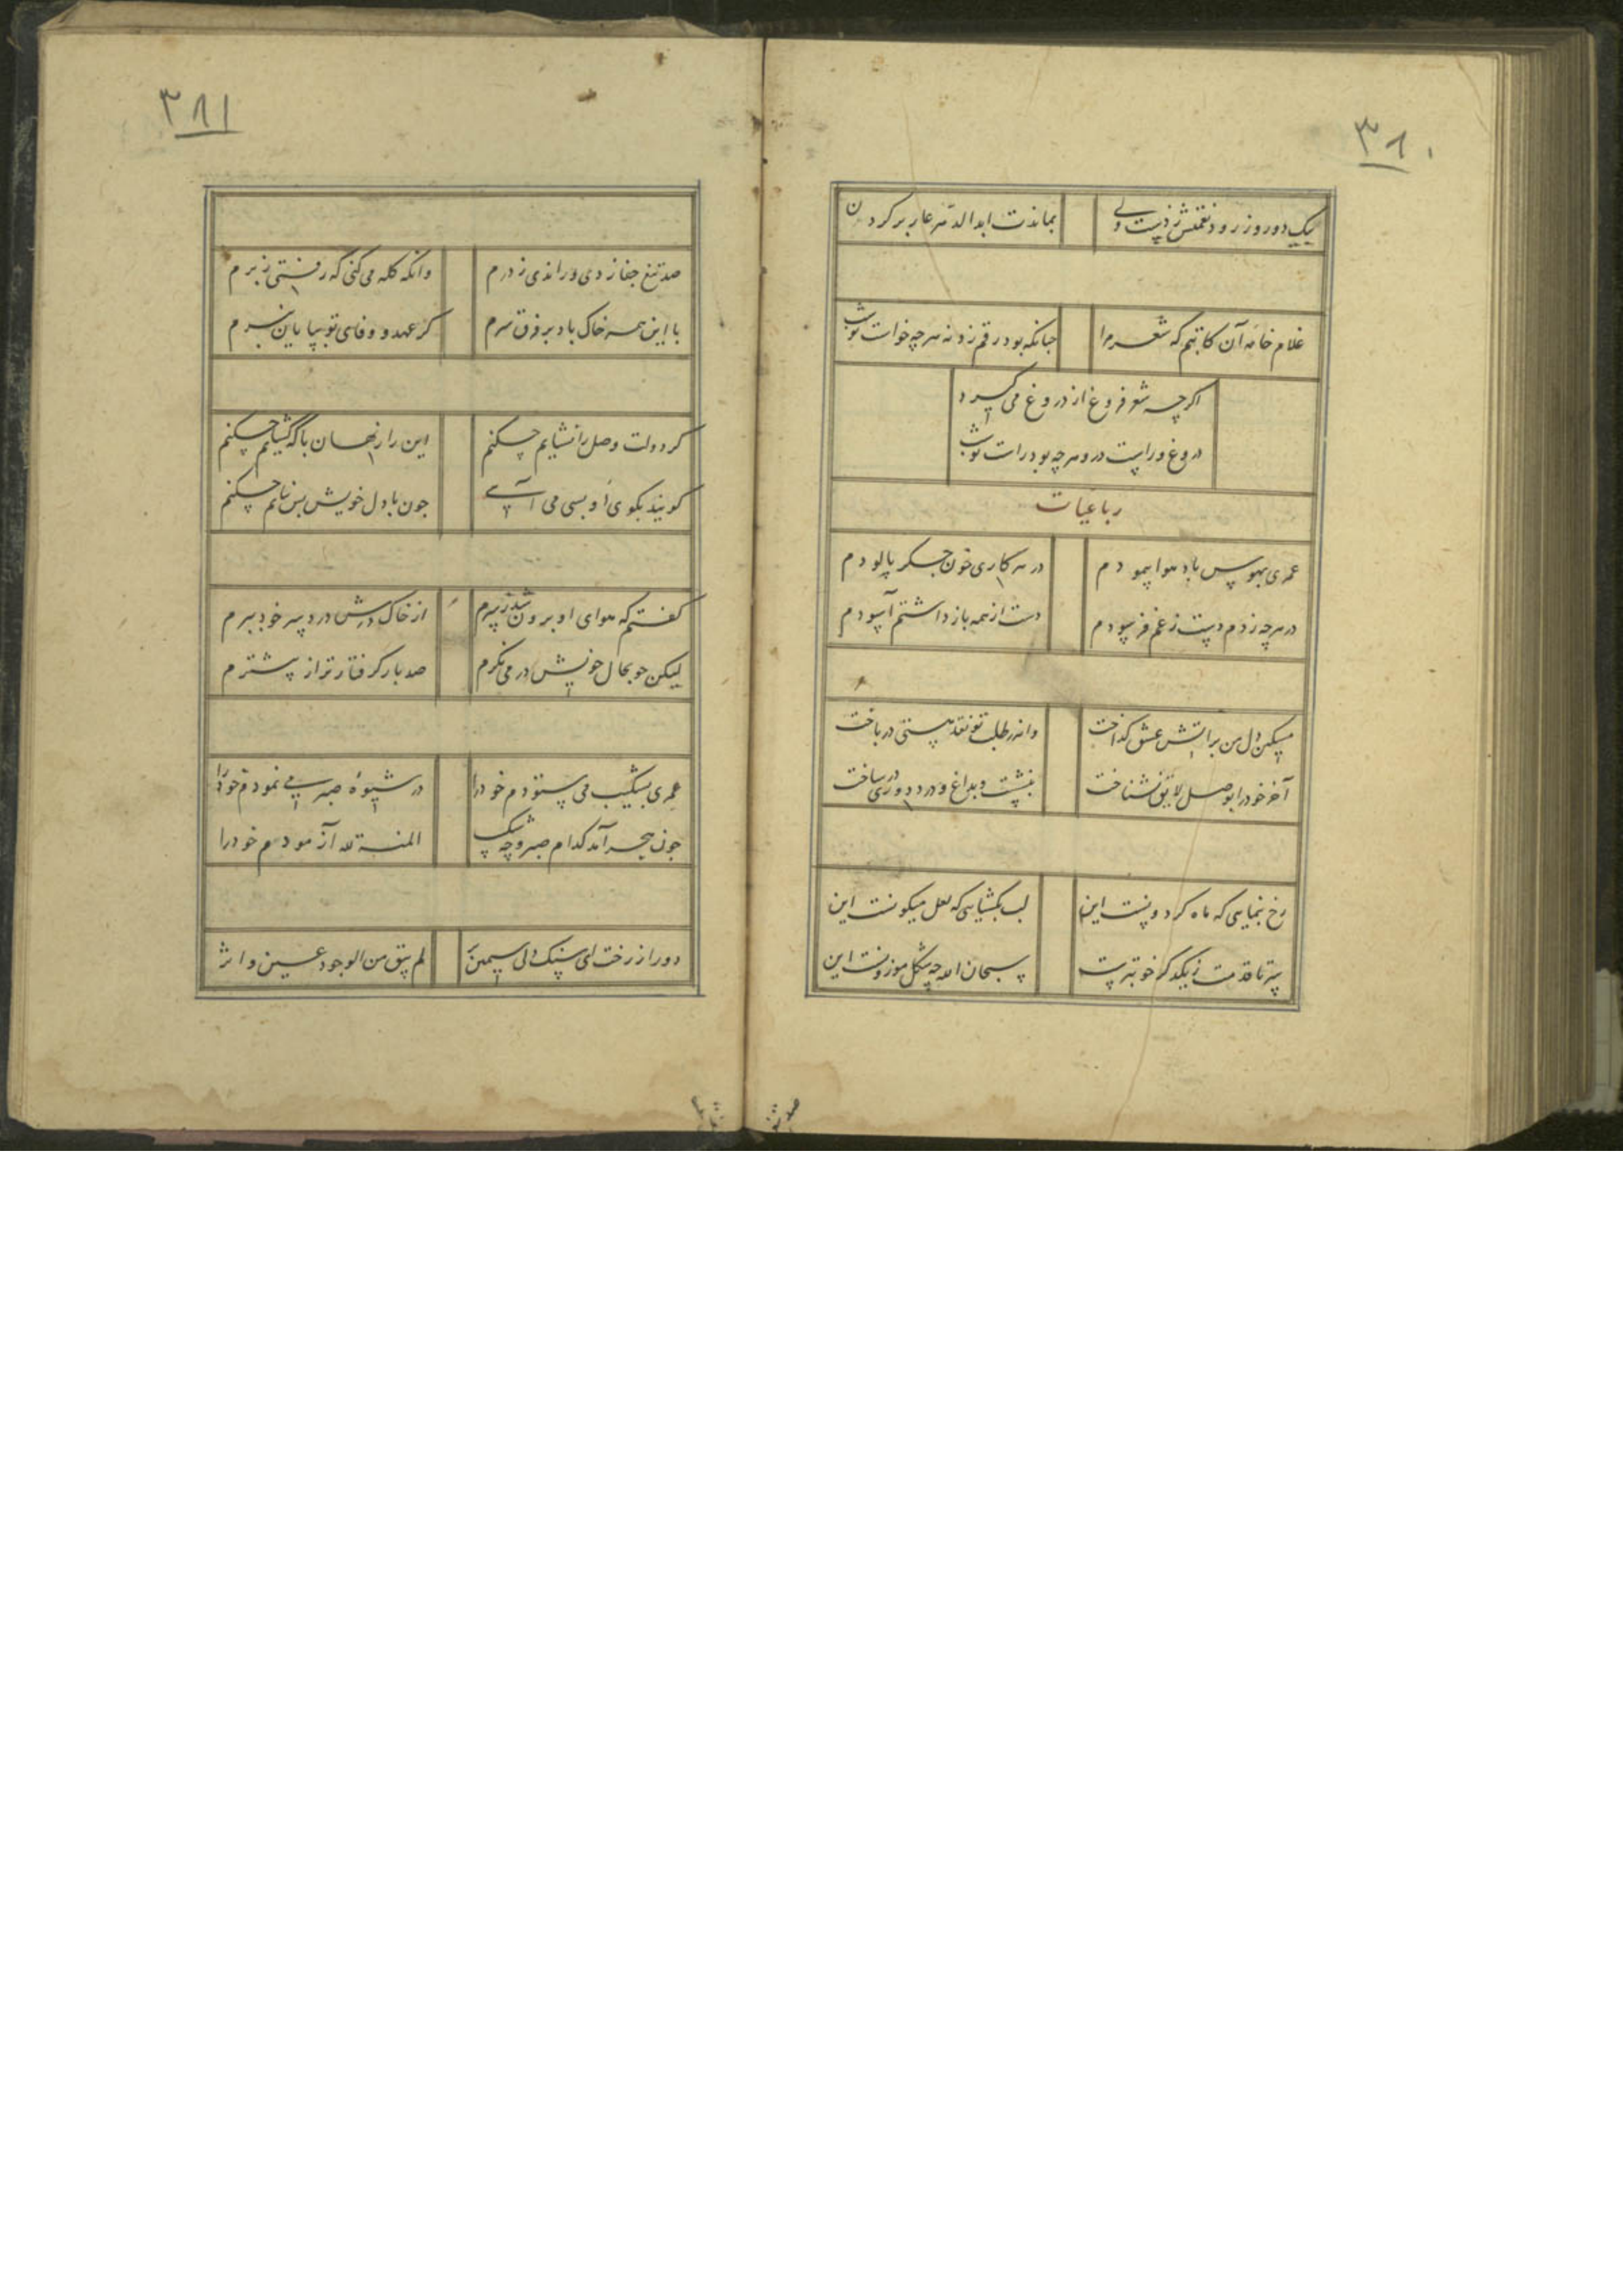 ۳۸۰
یک دو روز رود نقمتش ز دست ولی
بماندت ابد الدهر عار بر کردن
غلام خامه آن کاتبم که شعر مرا
چنانکه بود رقم زد نه هر چه خواست نوشت
اگر چه شعر فروغ از دروغ می گیرد
دروغ و راست درو هر چه بود راست نوشت
رباعیات
عمری بهوس باد هوا پیمودم
در هر کاری خون جگر پالودم
در هر چه زدم دست ز غم فرسودم
دست از همه باز داشتم آسودم
مسکین دل من بر آتش عشق گداخت
واندر طلب تو نقد هستی درباخت
آخر خود را بوصل لایق نشناخت
بنشست و بداغ و درد دوری در ساخت
رخ بنمایی که ماه گردونست این
لب بگشایی که لعل میگونست این
سر تا قدمت ز یکدگر خوبترست
سبحان الله چه شکل موزونست این
۳۸۱
صد تیغ جفا زدی و راندی ز درم
وانگه گله می کنی که رفتی ز برم
با این همه خاک باد بر فرق سرم
گر عهد و وفای تو بپایان نبرم
گر دولت وصل را نشایم چکنم
این راز نهان با که گشایم چکنم
گویند بکوی او بسی می آیی
چون با دل خویش بس نیایم چکنم
گفتم که هوای او برون شد ز سرم
از خاک درش درد سر خود ببرم
لیکن چو بحال خویش در می نگرم
صد بار گرفتارتر از پیشترم
عمری بشکیب می ستودم خود را
در شیوه صبر می نمودم خود را
چون هجر آمد کدام صبر و چه شکیب
المنة لله آزمودم خود را
دور از رخت ای سنگ دل سیمین بر
لم یبق من الوجود عین و اثر